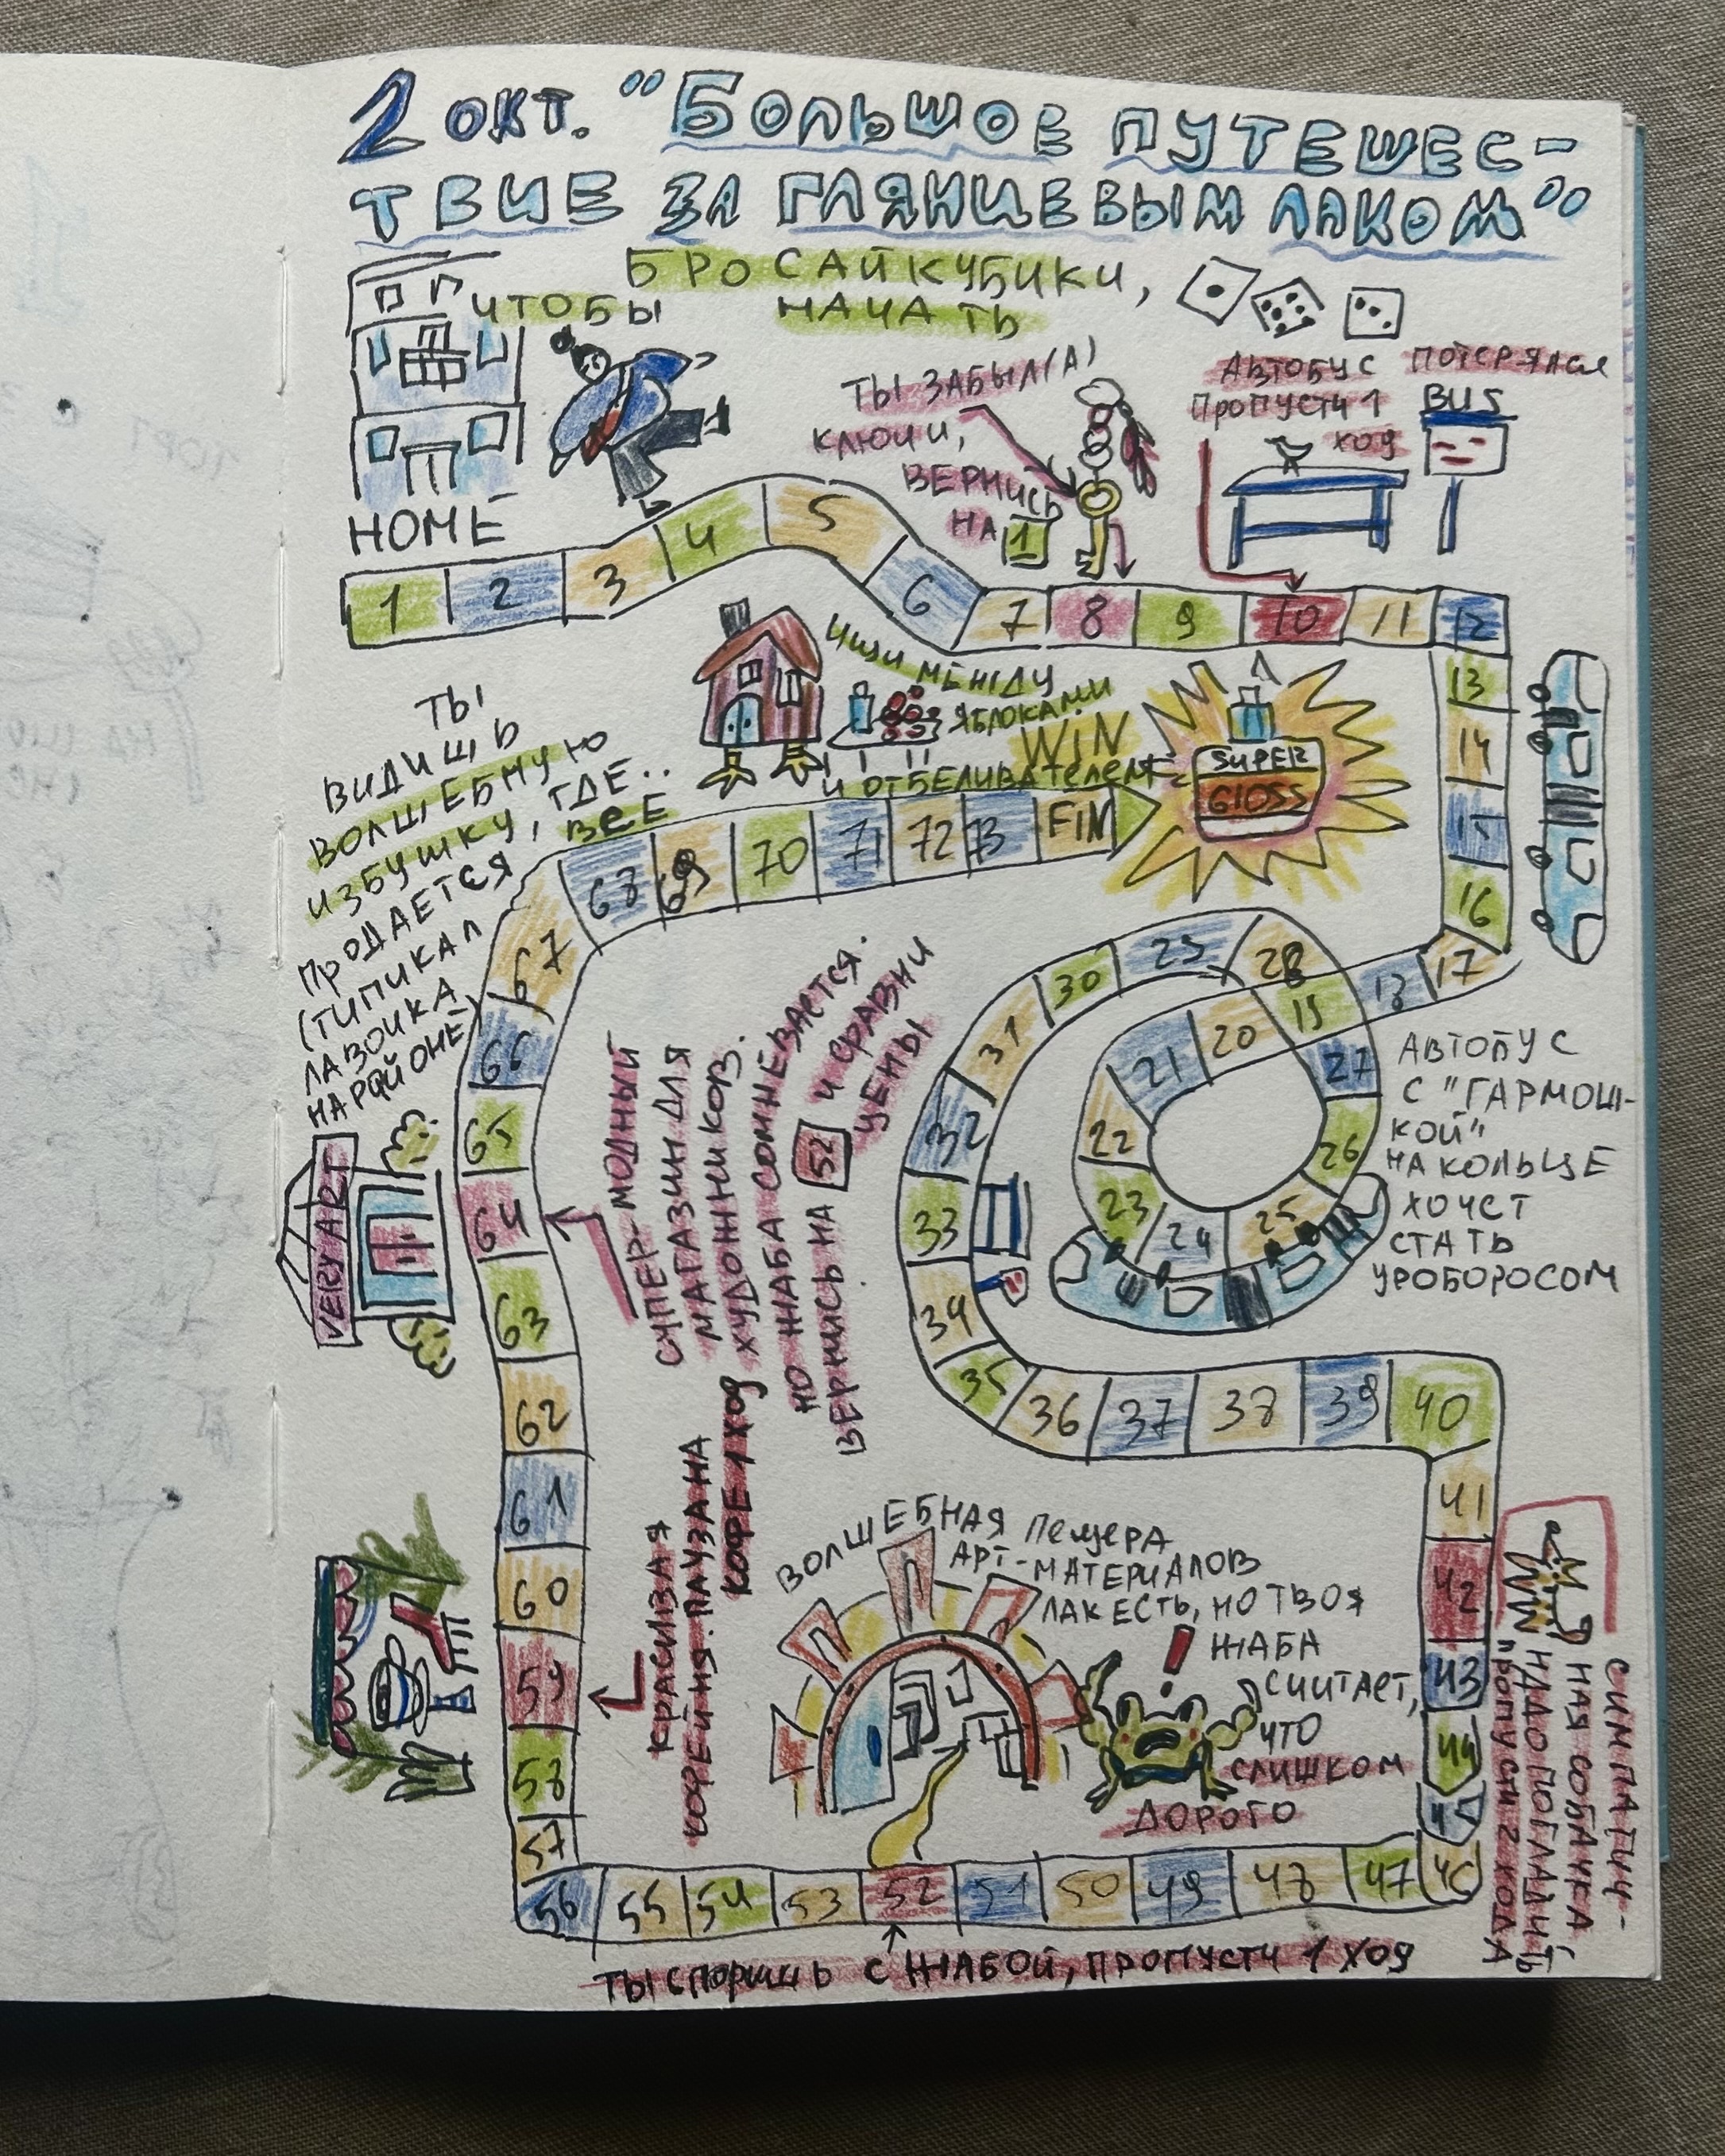 2 окт. "Большое путешес-
твие за глянцевым лаком"
Бросай кубики,
чтобы начать
HOME
Ты забыл(а)
ключи,
вернись
на 1
Автобус потерялся
пропусти 1
ход
BUS
1 2 3 4 5 6 7 8 9 10 11 12
13
14
15
16
17
18
19
20
21
22
23
24
25
26
27
28
29
30
31
32
33
34
35
36 37 38 39 40
41
42
43
44
45
46
47
48
49
50
51
52
53
54
55
56
57
58
59
60
61
62
63
64
65
66
67
68 69 70 71 72 73 FIN
Автопус
с "гармош-
кой"
на кольце
хочет
стать
уроборосом
Симпатич-
ная собачка
надо погладить
пропусти 2 хода
Волшебная пещера
арт-материалов
лак есть, но твоя
жаба
считает,
что
слишком
дорого
Ты споришь с жабой, пропусти 1 ход
Красивая
кофейня. Пауза на
кофе 1 ход
Супер-модный
магазин для
художников.
Но жаба сомневается.
Вернись на 52 и сравни
цены
VERY ART
Ты
видишь
волшебную
избушку, где..
всё
продаётся
(типикал
лавочка
на районе)
Ищи между
яблоками
и отбеливателем
WIN
SUPER
GLOSS